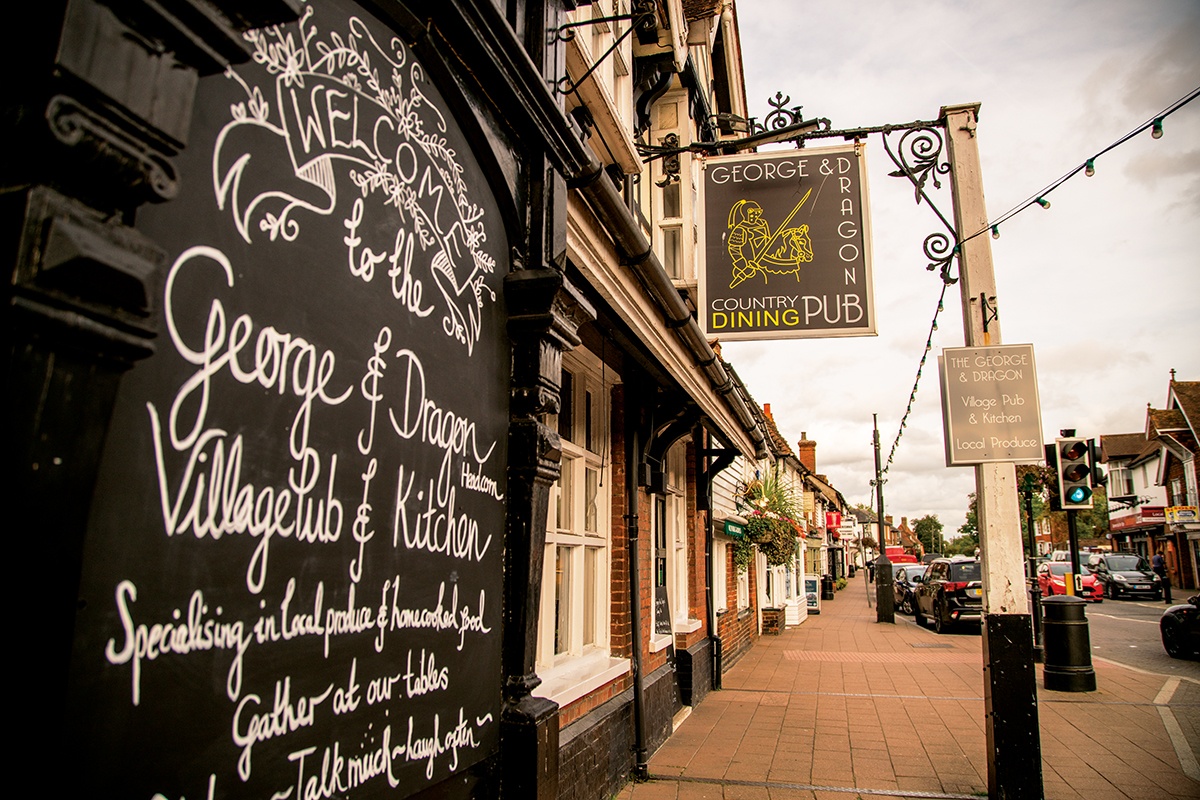 WELCOME
to the
George & Dragon
Village Pub & Kitchen
Headcorn
Specialising in local produce & homecooked food
Gather at our tables
~Talk much~laugh often~
GEORGE & DRAGON
COUNTRY
DINING PUB
THE GEORGE
& DRAGON
Village Pub
& Kitchen
Local Produce